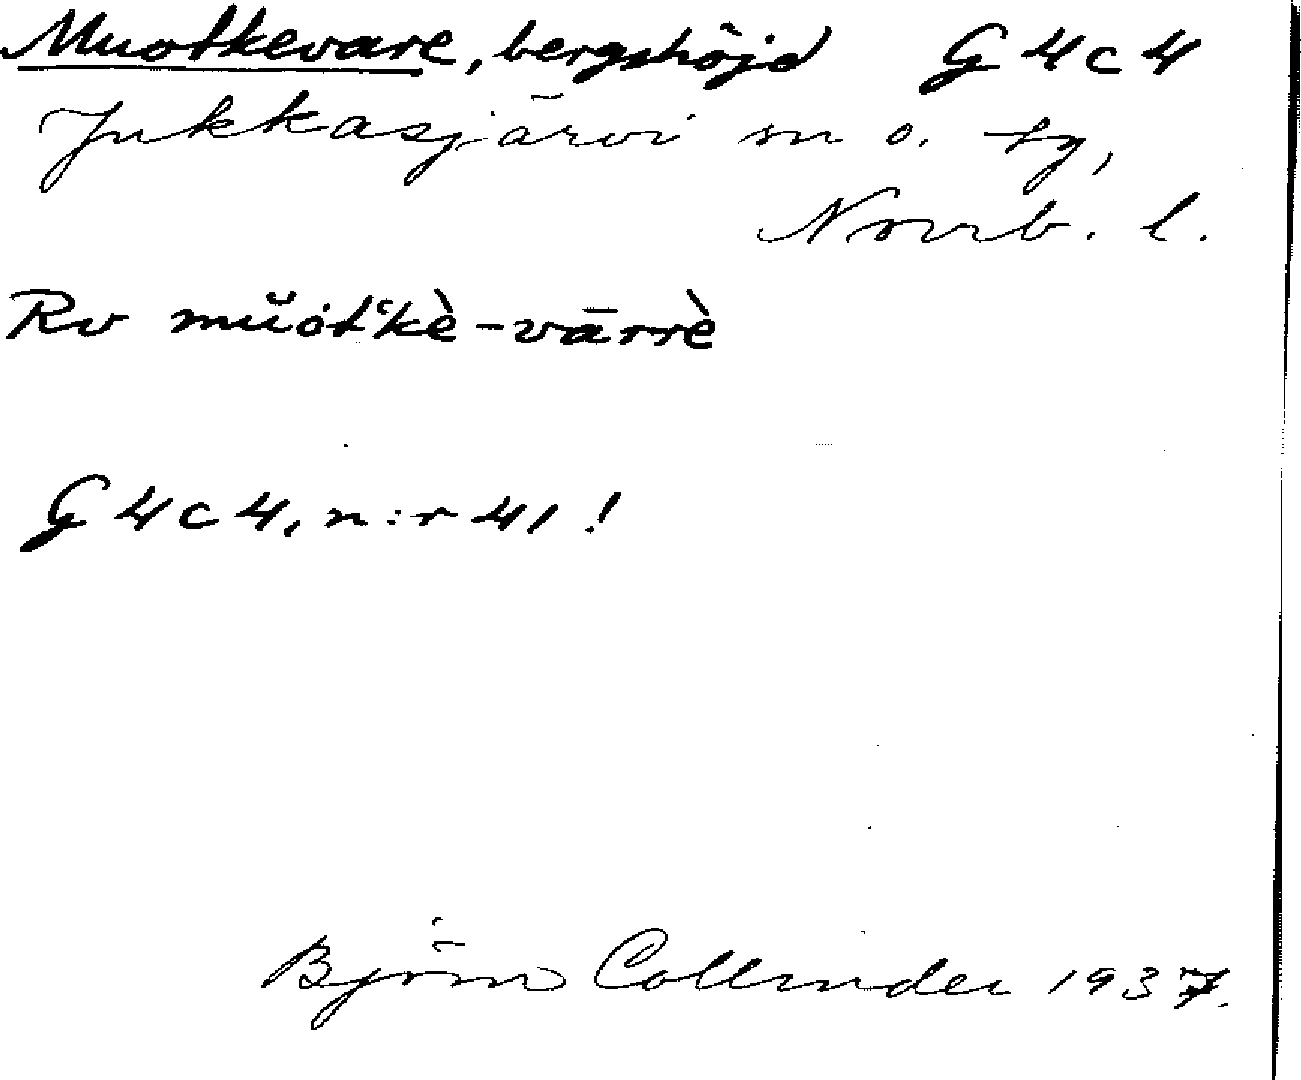 Muotkevare, bergshöjd G 4 c 4
Jukkasjärvi sn o. tg,
Norrb. l.
Rv mŭòt‛kè-vārrè
G 4 c 4, n:r 41 !
Björn Collinder 1937.